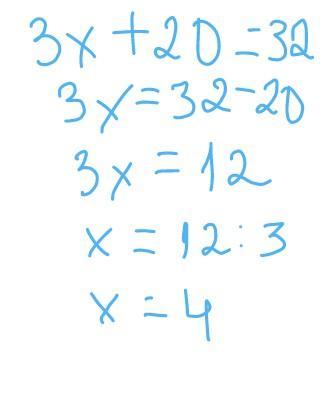 3x+20=32
3x=32-20
3x=12
x=12:3
x=4